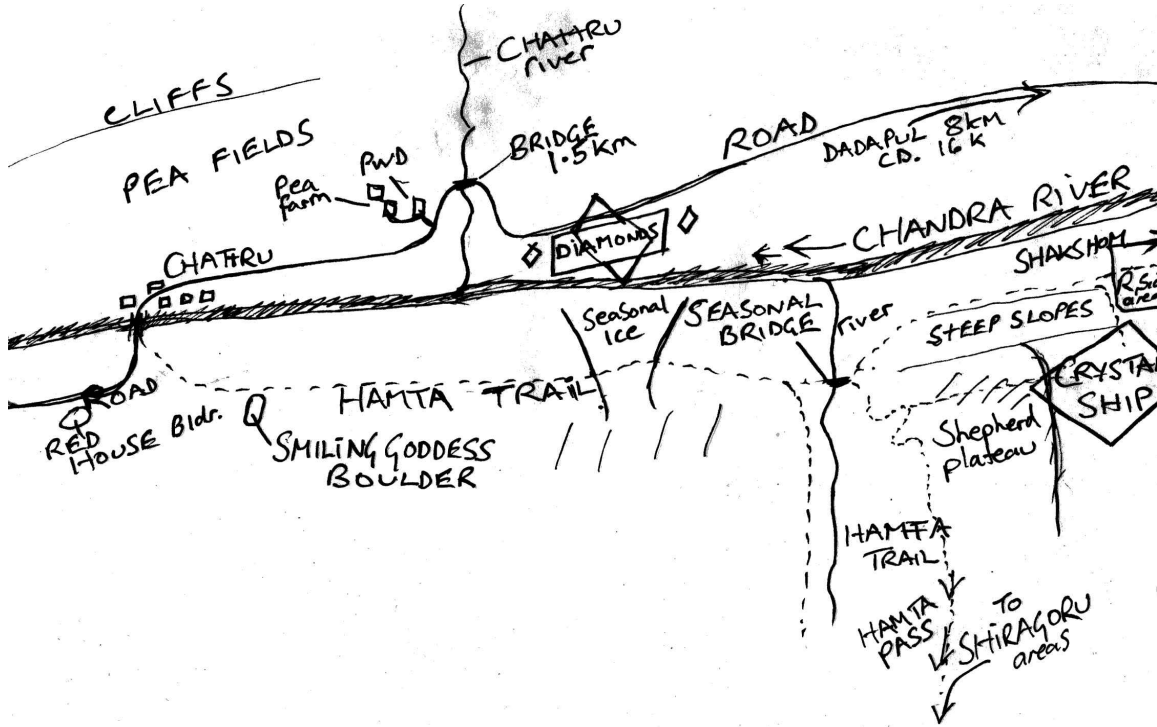 CHATTRU
river
CLIFFS
PEA FIELDS
PWD
Pea
farm
BRIDGE
1.5km
ROAD
DADAPUL 8KM
CD. 16K
DIAMONDS
CHANDRA RIVER
CHATTRU
SHAKSHOM
R. Side
area
Seasonal
Ice
SEASONAL
BRIDGE
river
STEEP SLOPES
CRYSTAL
SHIP
ROAD
RED
HOUSE Bldr.
HAMTA TRAIL
SMILING GODDESS
BOULDER
Shepherd
plateau
HAMTA
TRAIL
HAMTA
PASS
TO
SHIRAGORU
areas